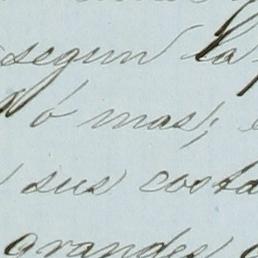 segun la
ó mas;
sus costa
grandes